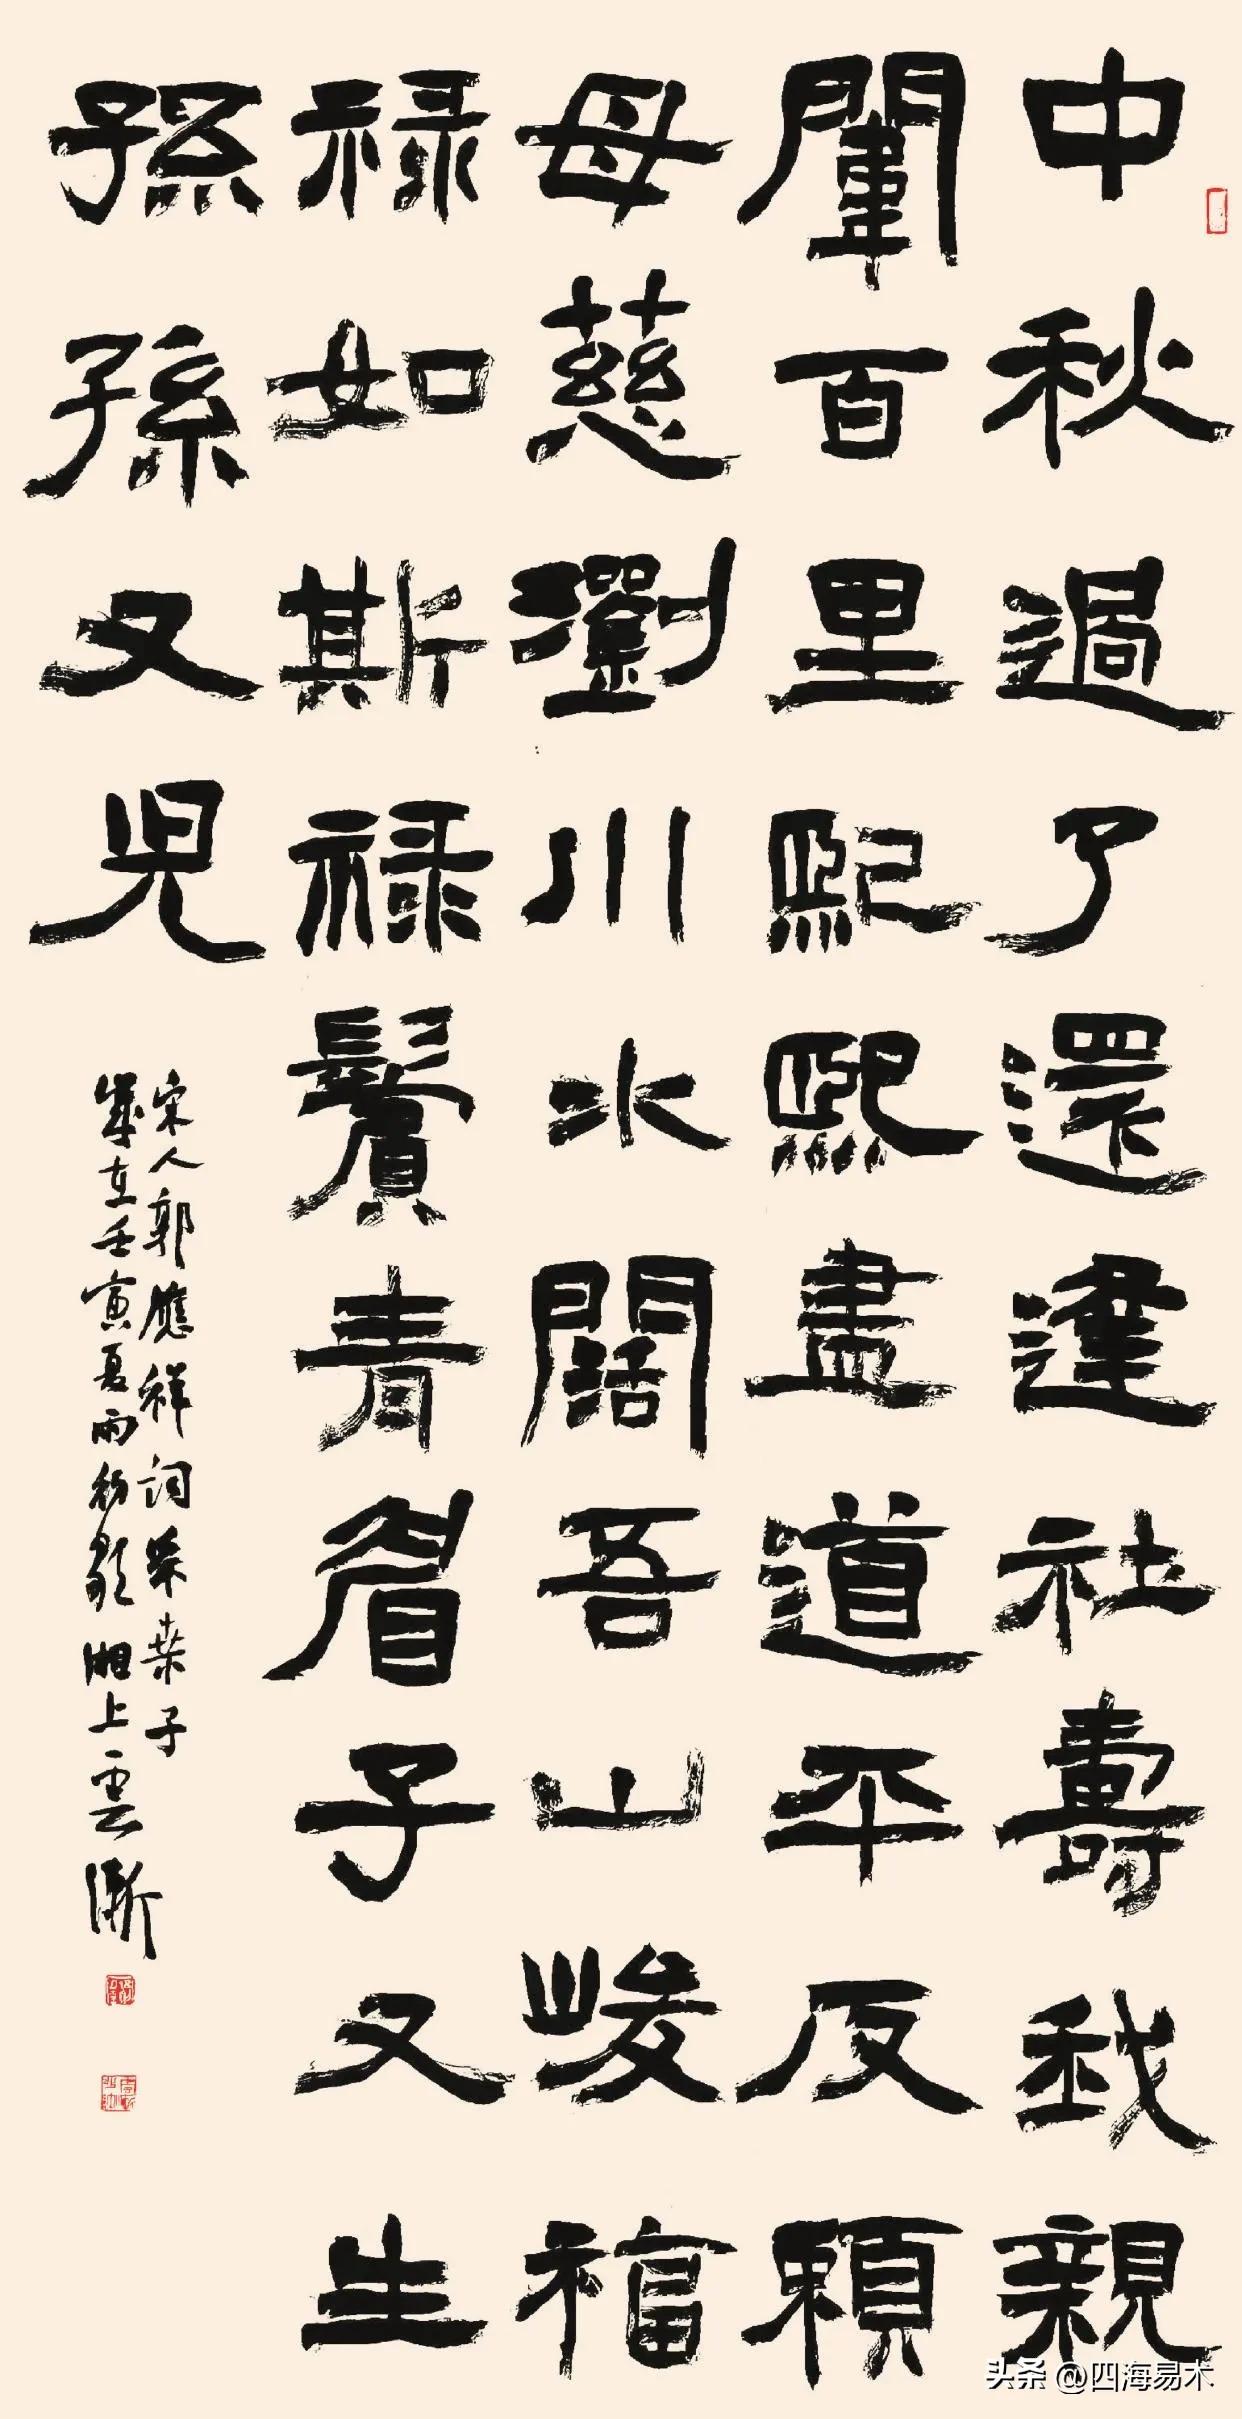 中秋過了還逢社壽我親
闈百里熙熙盡道平反賴
母慈瀏川水闊吾山峻福
禄如斯禄鬢青眉子又生
孫孫又兒
宋人郭應祥詞采桑子
歲在壬寅夏雨初歇湘上雲漸
头条 @四海易术